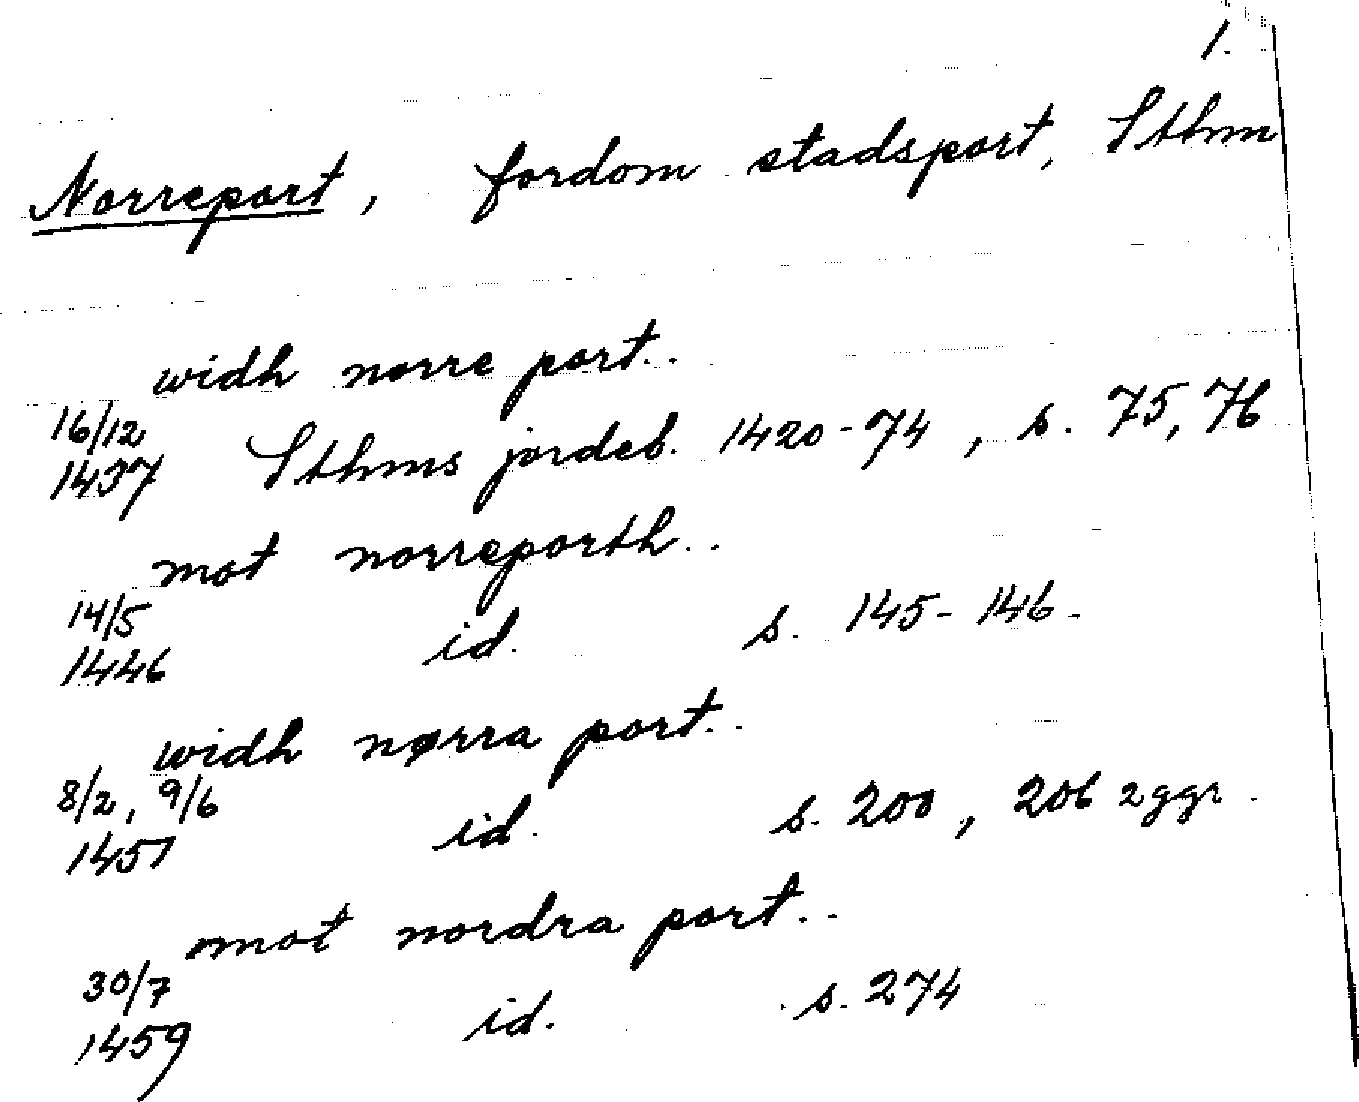 1.
Norreport, fordom stadsport, Sthm
widh norre port..
16/12
1437 Sthms jordeb. 1420-74, s. 75, 76
mot norreporth..
14/5
1446 id. s. 145-146.
widh nørra port..
8/2, 9/6
1451 id. s. 200, 206 2 ggr.
mot nordra port..
30/7
1459 id. s. 274